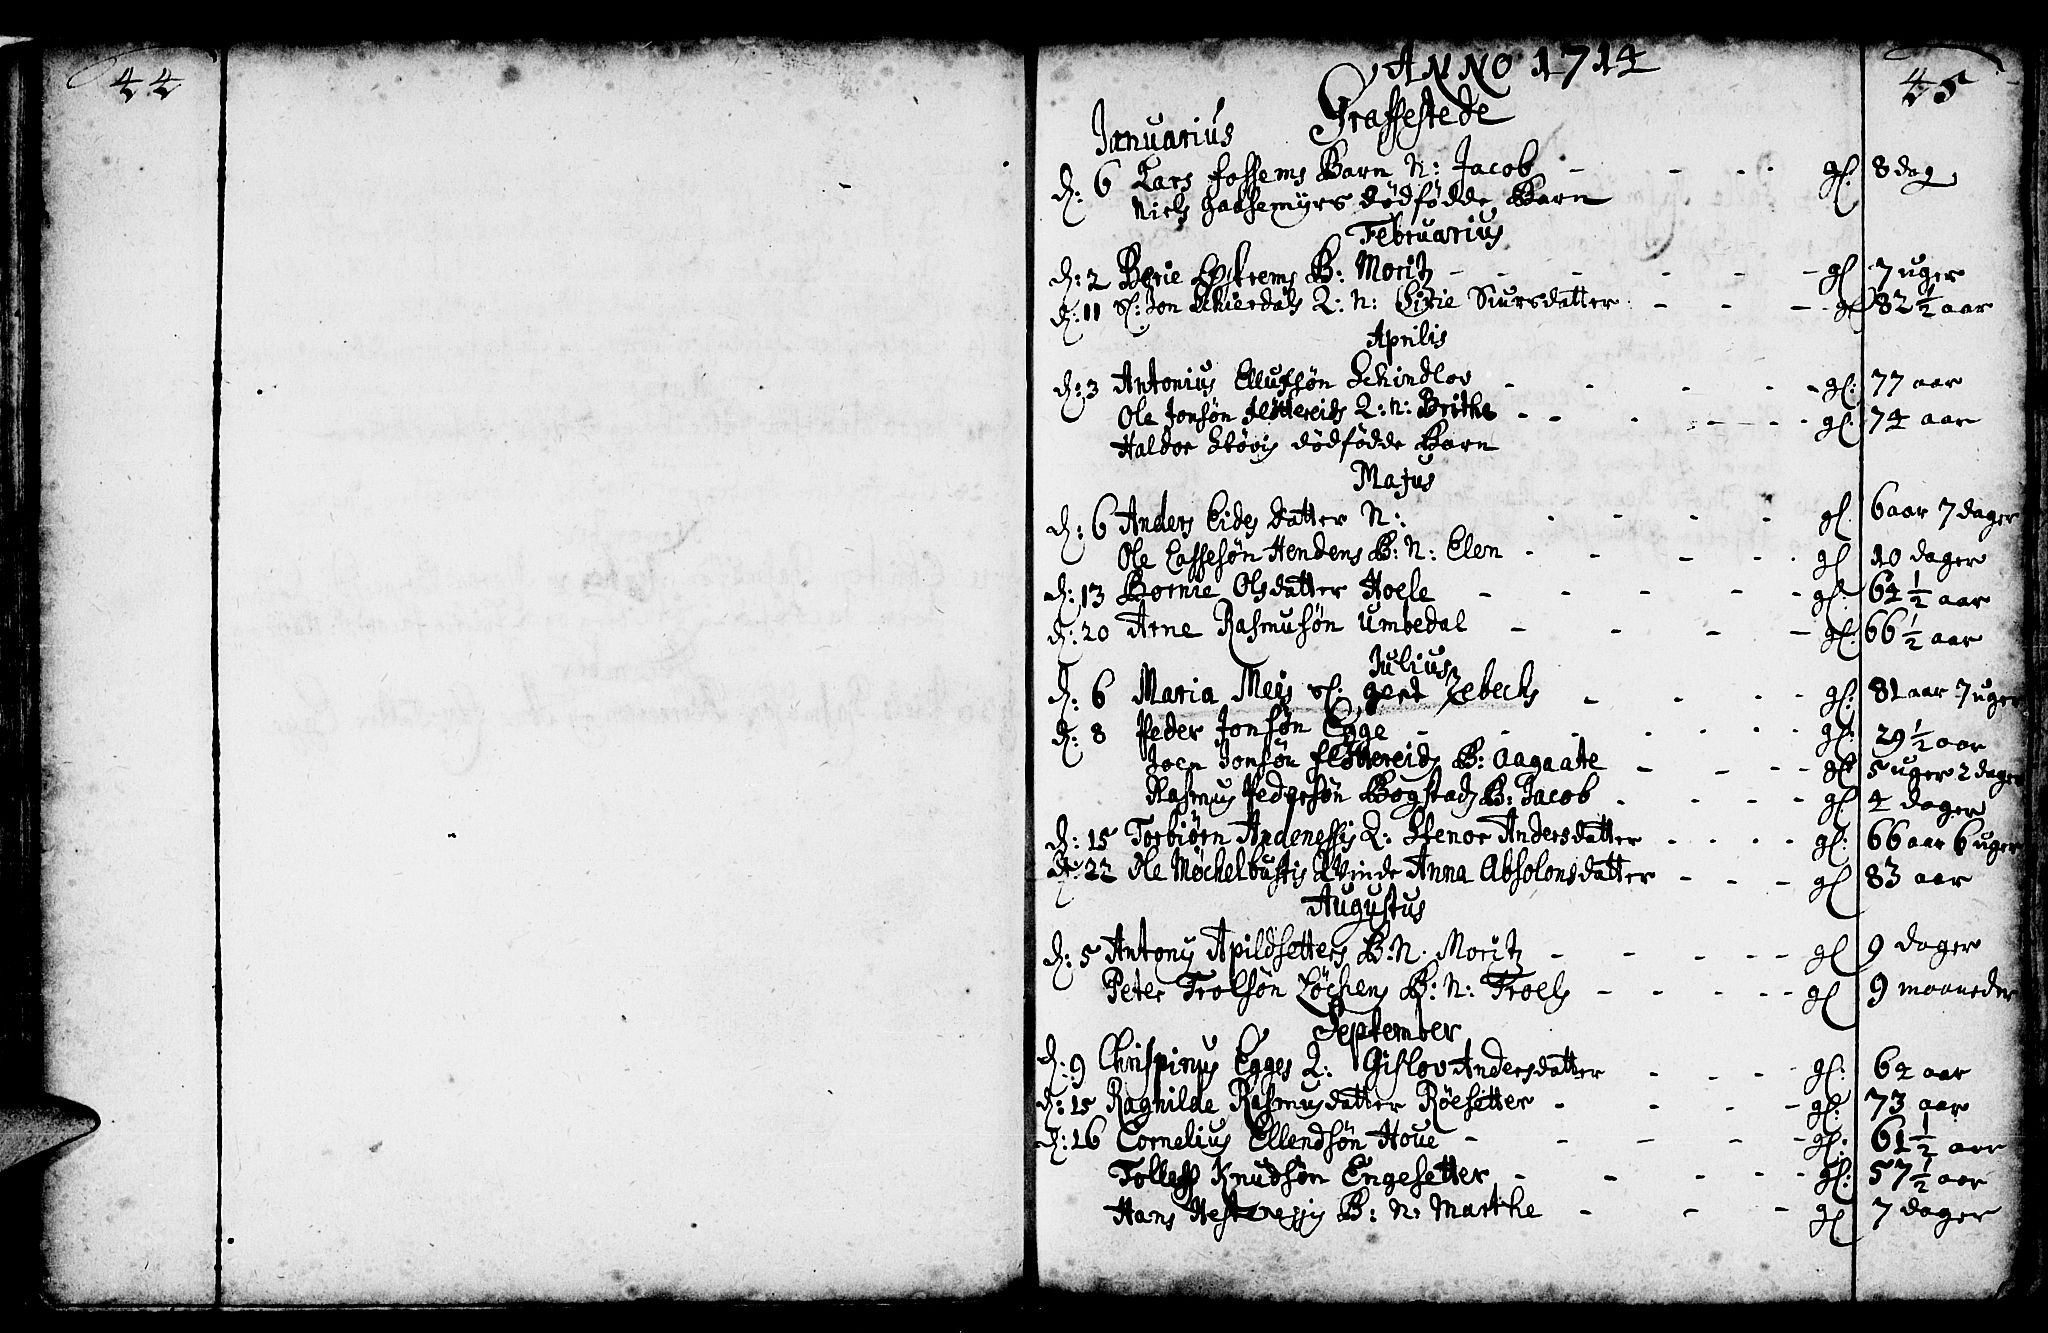 44
ANNO 1714
45
Graffestede
Januarius
d: 6 Lars fossems Barn N: Jacob - - - - gl: 8 dag
Niels Haasemyrs dödfödde Barn
Februarius
d: 2 Berie Løstrems B: Moritz - - - - - - gl 7 uger
d: 11 Sl: Jon Schierdals Q: N: Sisie Siursdatter - - - gl 82 1/2 aar
Aprilis
d: 3 Antonius Ellufsøn Schindlov - - - - - gl: 77 aar
Ole Jonsøn festereids Q: N: Brithe - - - - - gl: 74 aar
Haldor Støvis dödfödde Barn
Majus
d: 6 Anders Eides datter N: - - - - gl. 6 aar 7 dager
Ole Lassesøn Hendens B: N: Elen - - - - gl 10 dager
d: 13 Bornie Olsdatter Hoele - - - - - gl. 64 1/2 aar
d: 20 Arne Rasmusøn Umbedal - - - - gl: 66 1/2 aar
Julius
d: 6 Maria Meys Sl: gert Zebechs - - - - gl: 81 aar 7 uger
d: 8 Peder Jonsøn Egge - - - - - - - gl: 29 1/2 aar
Joen Jonsøn festereids B: Aagaate - - - - gl 5 uger 2 dager
Rasmus Pedersøn Bogstads B: Jacob - - - - gl 4 dager
d: 15 Torbiørn Andenessis Q: Stenor Andersdatter - - - - gl: 66 aar 6 uger
d: 22 Ole Møchelbustis Qvinde Anna Absolonsdatter - - - gl 83 aar
Augustus
d: 5 Antonis Apildsetters B: N. Moritz - - - - - gl 9 dager
Peter Trolsøn Løchens B: N: Troels - - - - - gl 9 maaneder
September
d: 9 Chrispinus Egges Q: Gislov Andersdatter - - - gl: 64 aar
d: 15 Ragnilde Rasmusdatter Röesetter - - - - gl: 73 aar
d: 16 Cornelius Ellendsøn Houe - - - - - gl: 61 1/2 aar
Tolless Knudsøn Engesetter - - - - - gl: 57 1/2 aar
Hans Hestenessis B: N: Marthe - - - gl 7 dager